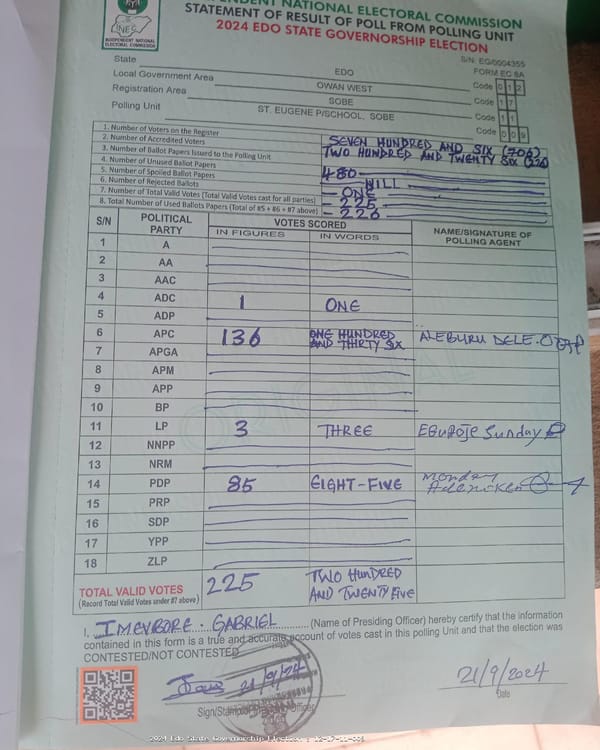 INDEPENDENT NATIONAL ELECTORAL COMMISSION
INEC
INDEPENDENT NATIONAL ELECTORAL COMMISSION
STATEMENT OF RESULT OF POLL FROM POLLING UNIT
2024 EDO STATE GOVERNORSHIP ELECTION
S/N. EG/0004355
FORM EC 8A
State EDO Code 0 1 2
Local Government Area OWAN WEST Code 1 7
Registration Area SOBE Code 1 1
Polling Unit ST. EUGENE P/SCHOOL, SOBE Code 0 0 9
1. Number of Voters on the Register SEVEN HUNDRED AND SIX (706)
2. Number of Accredited Voters TWO HUNDRED AND TWENTY SIX (226
3. Number of Ballot Papers Issued to the Polling Unit
4. Number of Unused Ballot Papers 480
5. Number of Spoiled Ballot Papers NILL
6. Number of Rejected Ballots ONE
7. Number of Total Valid Votes (Total Valid Votes cast for all parties) 225
8. Total Number of Used Ballots Papers (Total of #5 + #6 + #7 above) 226
S/N POLITICAL PARTY VOTES SCORED NAME/SIGNATURE OF POLLING AGENT
IN FIGURES IN WORDS
1 A
2 AA
3 AAC
4 ADC 1 ONE
5 ADP
6 APC 136 ONE HUNDRED AND THIRTY SIX ALEBURU DELE.
7 APGA
8 APM
9 APP
10 BP
11 LP 3 THREE EGUROJE Sunday
12 NNPP
13 NRM
14 PDP 85 EIGHT-FIVE Monday
15 PRP
16 SDP
17 YPP
18 ZLP
TOTAL VALID VOTES 225 TWO HUNDRED AND TWENTY FIVE
(Record Total Valid Votes under #7 above)
ORIGINAL
I, IMEVBORE. GABRIEL (Name of Presiding Officer) hereby certify that the information
contained in this form is a true and accurate account of votes cast in this polling Unit and that the election was
CONTESTED/NOT CONTESTED
21/9/24
21/9/2024
Sign/Stamp of Presiding Officer
Date